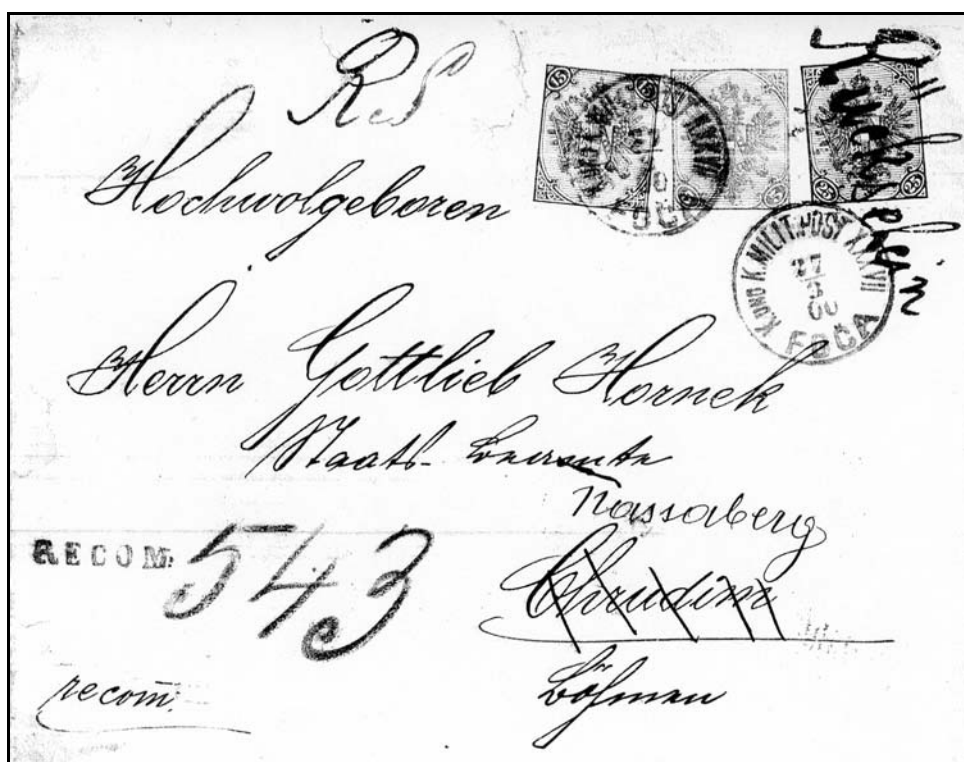 R.S
Rückschein
15 15
15 5
25 25
K. UND K. MILIT. POST XXXVII
FOČA
K. UND K. MILIT. POST XXXVII
27
3
00
FOČA
Hochwolgeboren
Herrn Gottlieb Hornek
Staats-Beamte
Nassaberg
Chrudim
Böhmen
RECOM:
543
recom̄.